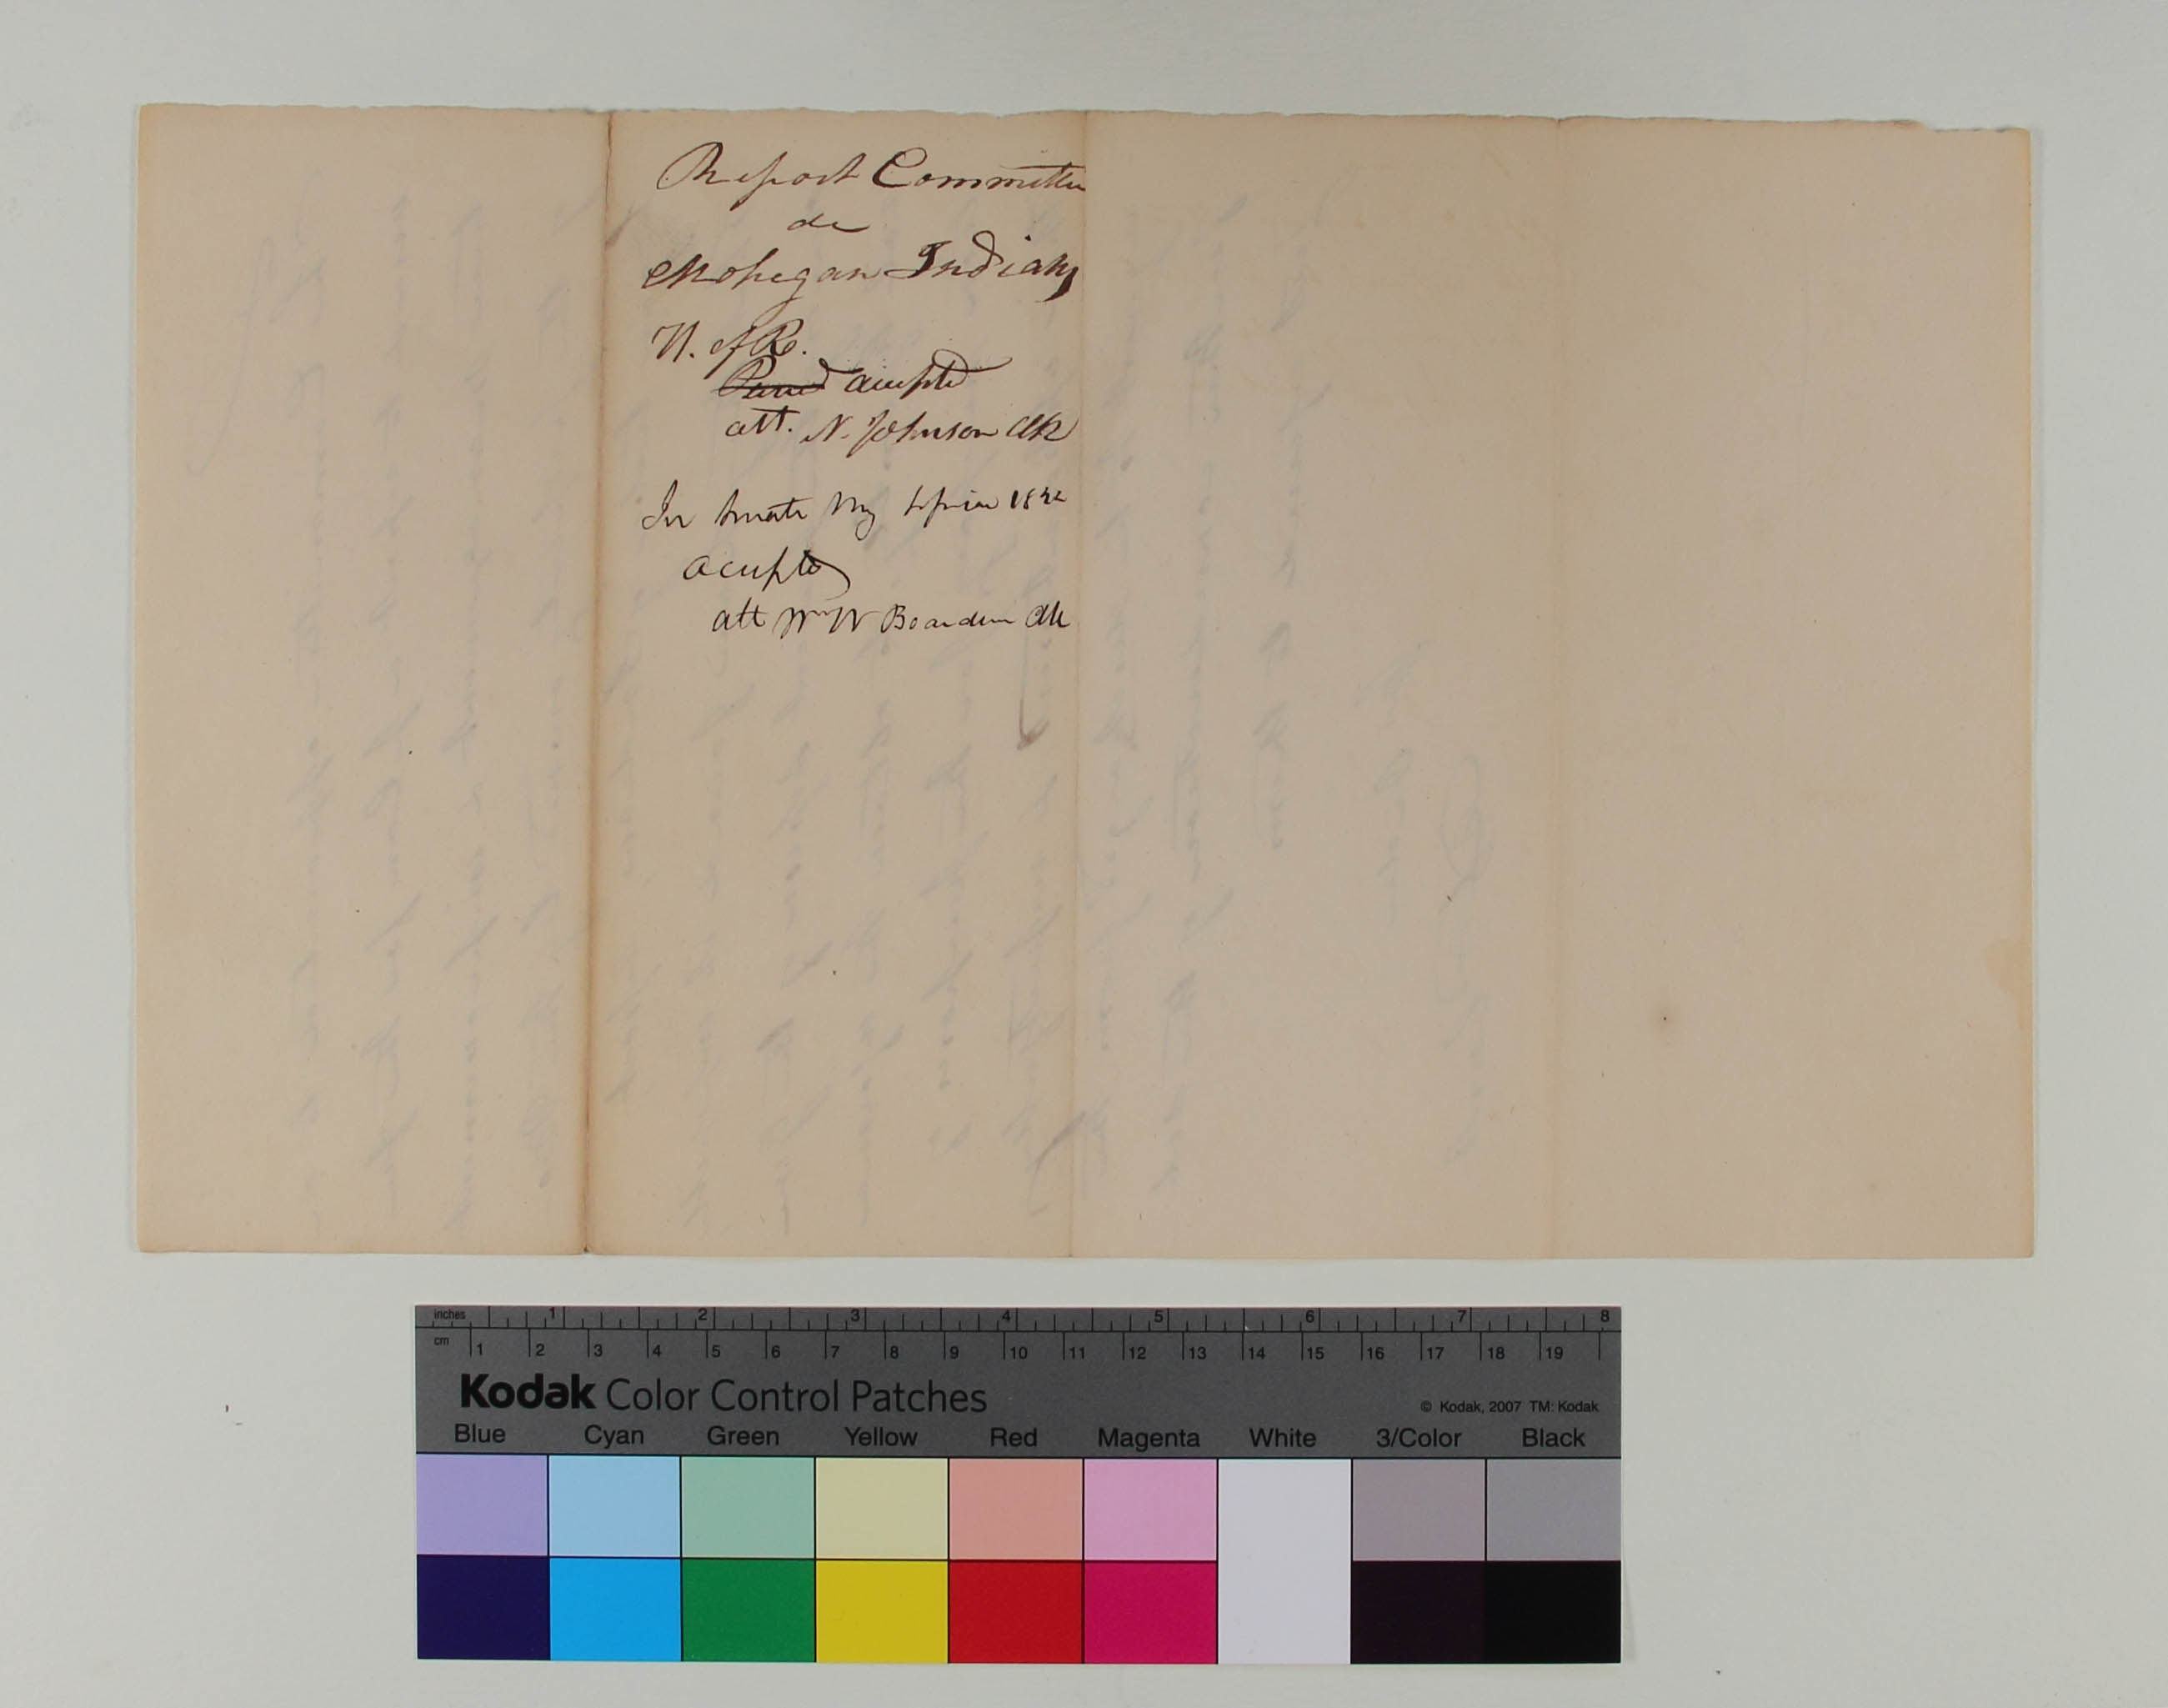 Report Committee
de
Mohegan Indians
H. of R.
Passed accepted
att. N. Johnson Clk
In Senate May 1832
accepted
att Wm W Boardman Clk
inches 1 2 3 4 5 6 7 8
cm 1 2 3 4 5 6 7 8 9 10 11 12 13 14 15 16 17 18 19
Kodak Color Control Patches
© Kodak, 2007 TM: Kodak
Blue Cyan Green Yellow Red Magenta White 3/Color Black